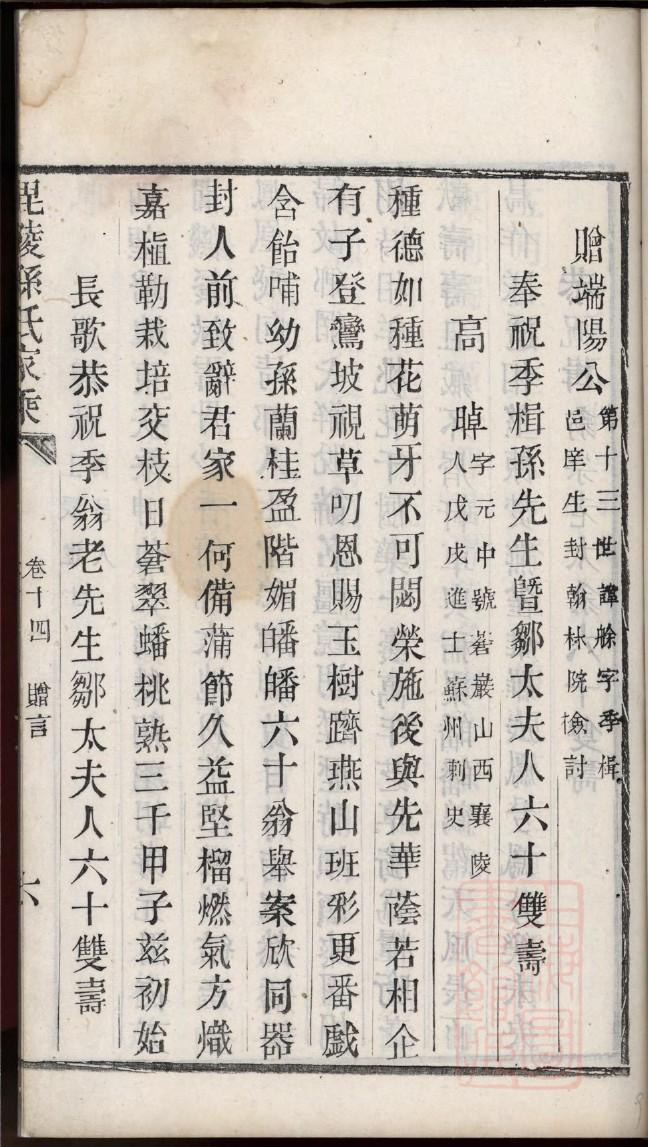 贈端陽公
第十三世諱艅字季楫
邑庠生封翰林院檢討
奉祝季楫孫先生暨鄒太夫人六十雙壽
高晫
字元中號蒼巖山西襄陵
人戊戌進士蘇州刺史
種德如種花萌牙不可閟榮施後與先華蔭若相企
有子登鸞坡視草叨恩賜玉樹躋燕山班彩更番戯
含飴哺幼孫蘭桂盈階媚皤皤六十翁舉案欣同器
封人前致辭君家一何備蒲節久益堅榴燃氣方熾
嘉植勤栽培交枝日蒼翠蟠桃熟三千甲子玆初始
長歌恭祝季翁老先生鄒太夫人六十雙壽
毘陵孫氏家乘
卷十四
贈言
六